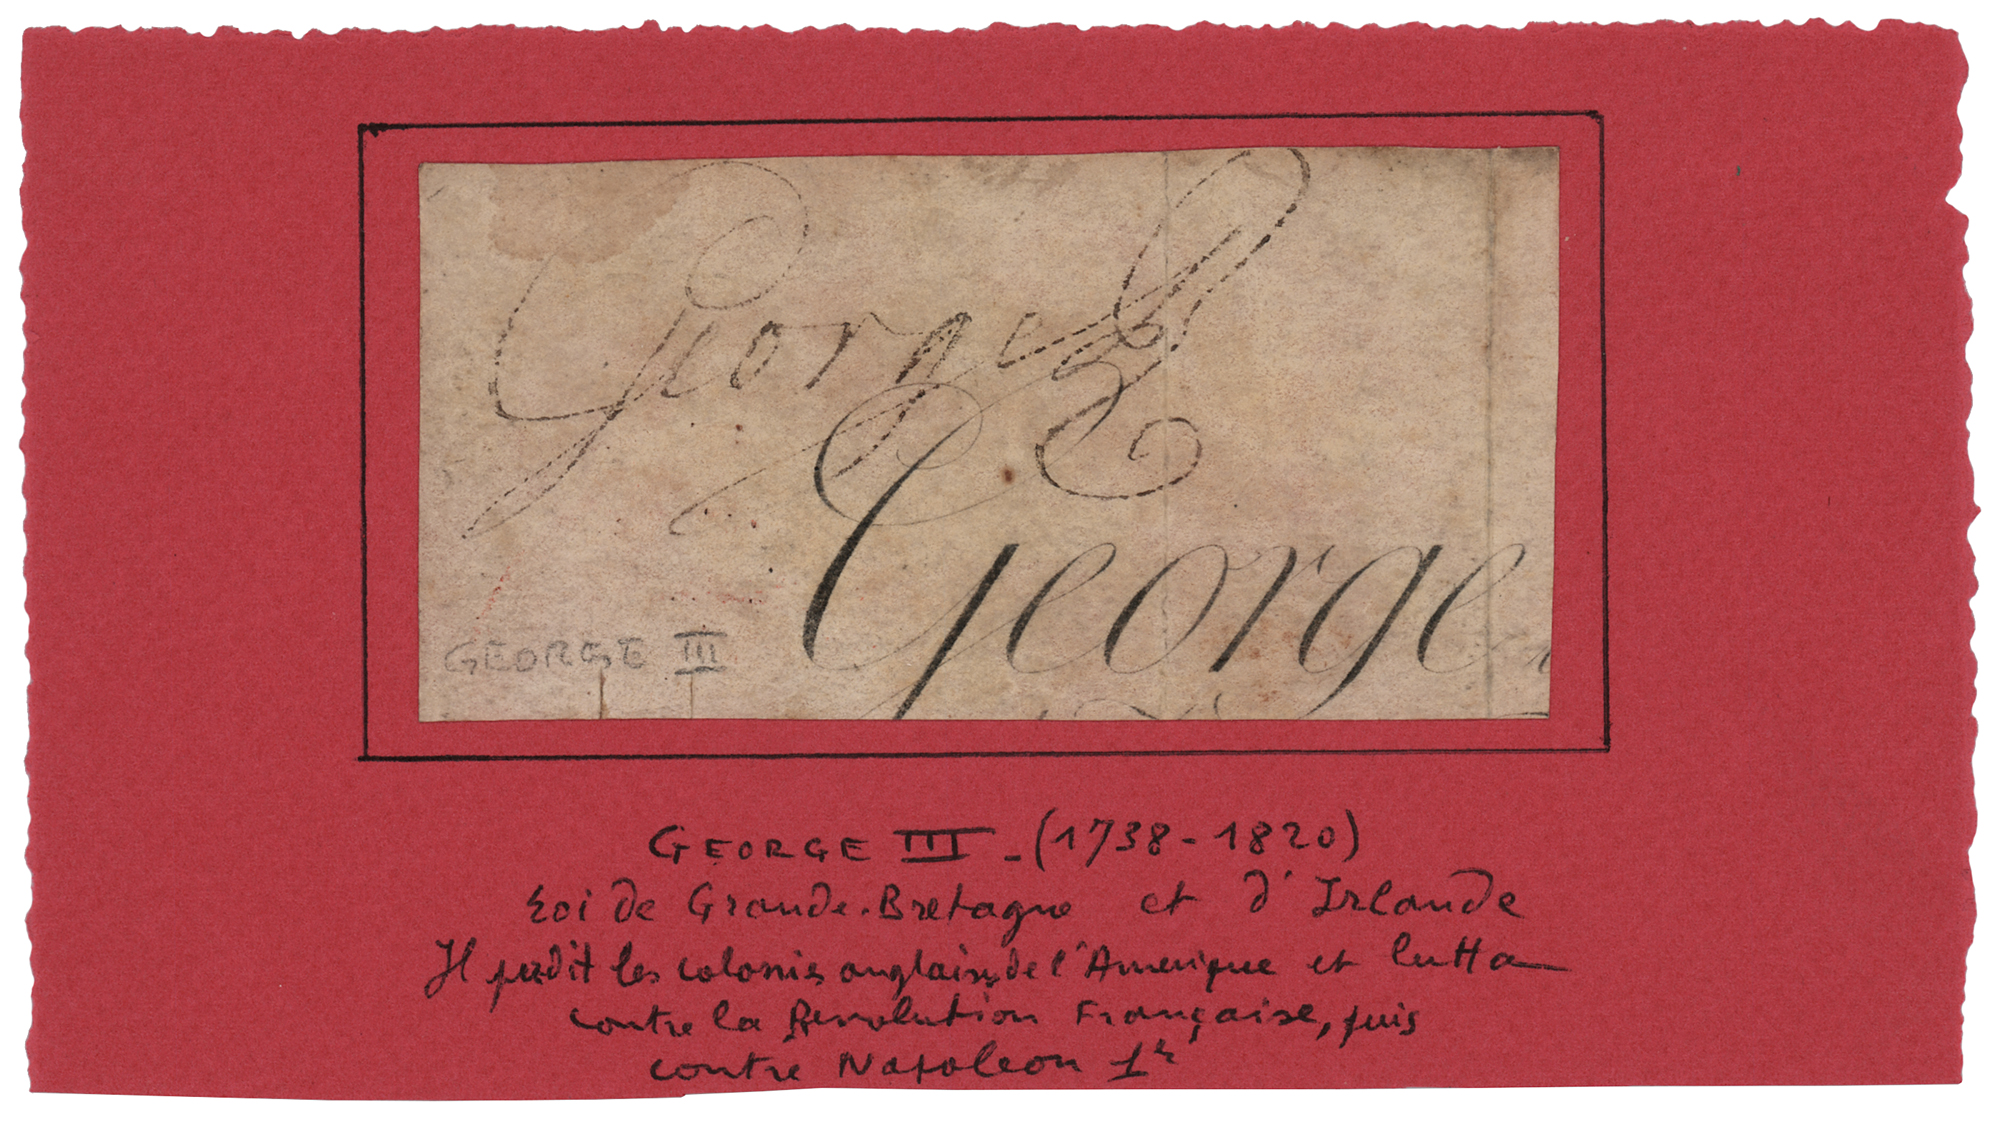 George R
George
GEORGE III
GEORGE III - (1738-1820)
roi de Grande-Bretagne et d'Irlande
Il perdit les colonies anglaises de l'Amérique et lutta
contre la Revolution Française, puis
contre Napoleon 1er